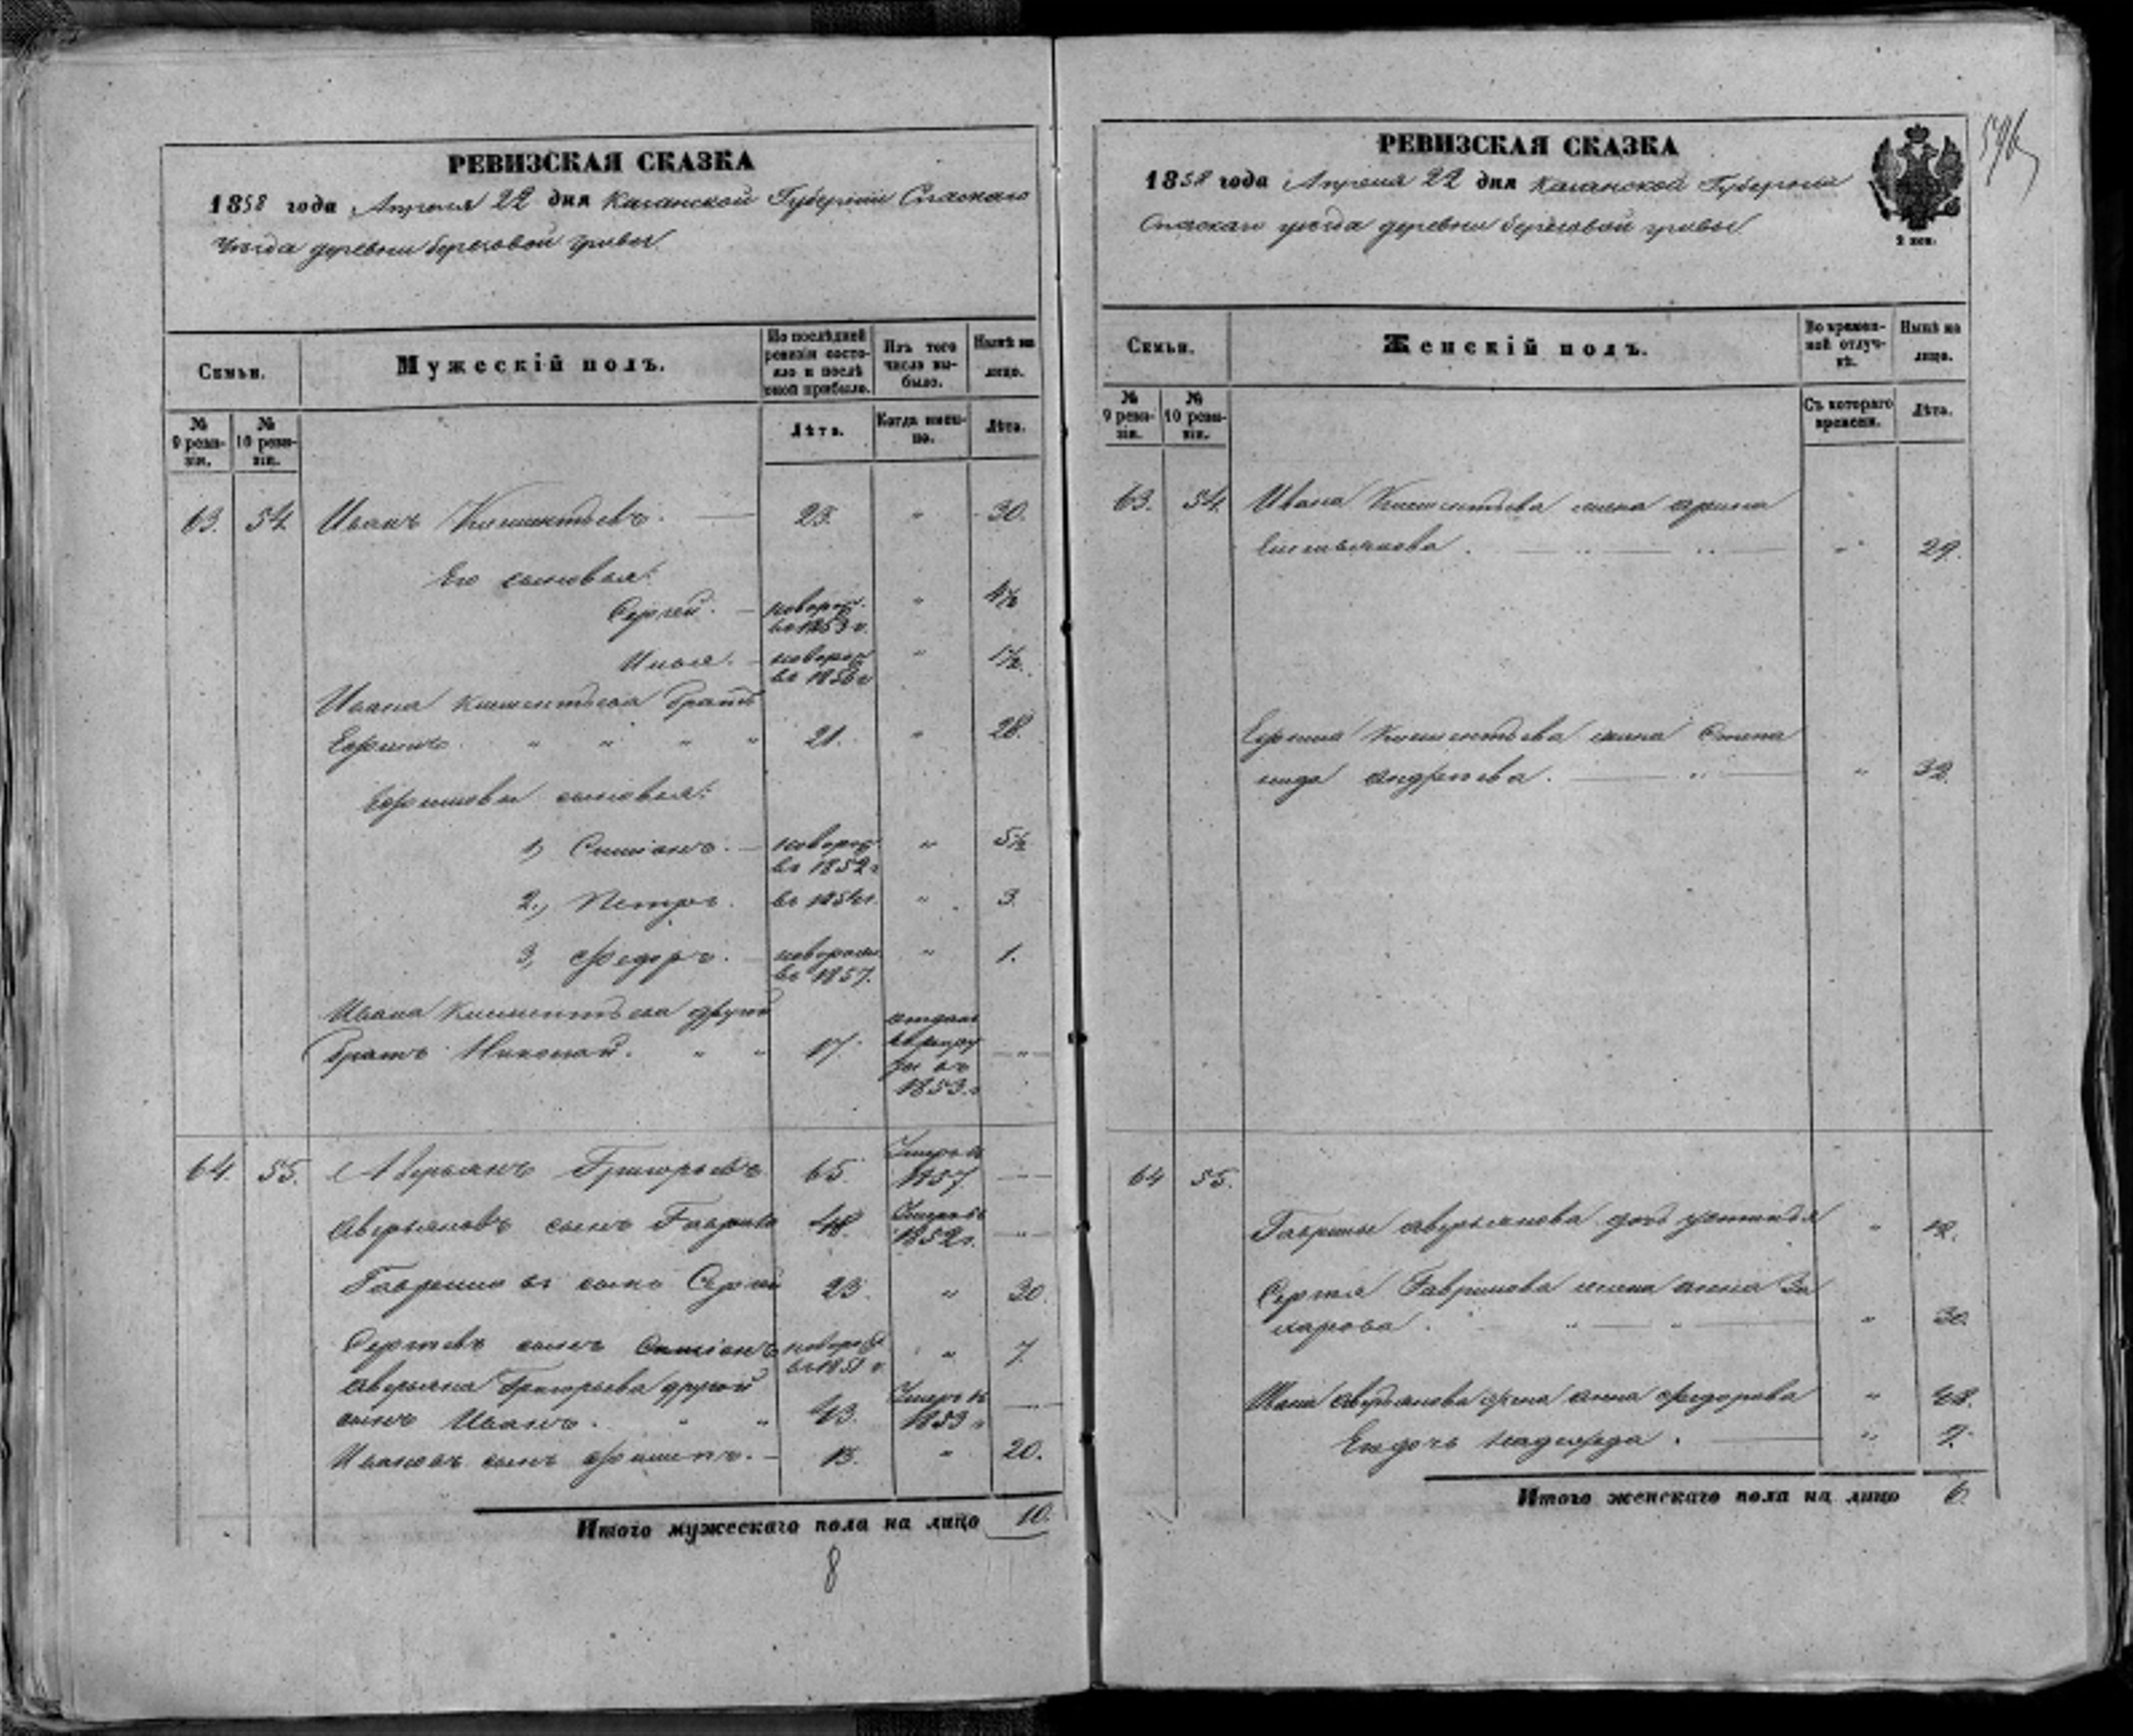 РЕВИЗСКАЯ СКАЗКА
1858 года Апреля 22 дня Казанской Губернiи Спаскаго
уѣзда деревни береговой гривы
Семьи.
Мужескій полъ.
По послѣдней ревизіи состояло и послѣ оной прибыло.
Изъ того числа выбыло.
Нынѣ на лицо.
№ 9 ревизіи.
№ 10 ревизіи.
Лѣта.
Когда именно.
Лѣта.
63. 54 Иванъ Климентьевъ. 23. " 30.
Его сыновья:
Сергей. новорож. въ 1853 г. " 4½
Илья. новорож въ 1856 г " 1½.
Ивана Климентьева братъ
Ефимъ. " " " " 21. " 28.
Ефимовы сыновья:
1, Симіонъ. новорож. въ 1852 г " 5½
2., Петръ. въ 1854 г. " 3.
3, Федоръ. новорож. въ 1857. " 1.
Ивана Климентьева другой
братъ Николай. " " 17. отданъ въ рекруты въ 1853. г "
64. 55. Аверьянъ Григорьевъ 65. Умеръ въ 1857
Аверьяновъ сынъ Гаврила 48. Умеръ въ 1852 г. "
Гавриловъ сынъ Сергей 23. " 30.
Сергѣевъ сынъ Симіонъ новорож въ 1851 г " 7.
Аверьяна Григорьева другой
сынъ Иванъ. " " 43. Умеръ въ 1853 г
Ивановъ сынъ Филипъ. 13. " 20.
Итого мужескаго пола на лицо 10.
8
596
РЕВИЗСКАЯ СКАЗКА
1858 года Апреля 22 дня Казанской Губерніи
Спаскаго уѣзда деревни береговой гривы
2 коп.
Семьи.
Женскій полъ.
Во временной отлучкѣ.
Нынѣ на лицо.
№ 9 ревизіи.
№ 10 ревизіи.
Съ котораго времени.
Лѣта.
63. 54. Ивана Климентьева жена Арина
Емельянова. " 29.
Ефима Климентьева жена Степа
нида Андреева. " " 32.
64 55.
Гаврилы Аверьянова дочь Устинья " 12.
Сергѣя Гаврилова жена Анна За
харова. " " " 30.
Ивана Аверьянова жена Анна Федорова " 48.
Ея дочь Надежда. " 7.
Итого женскаго пола на лицо 6.